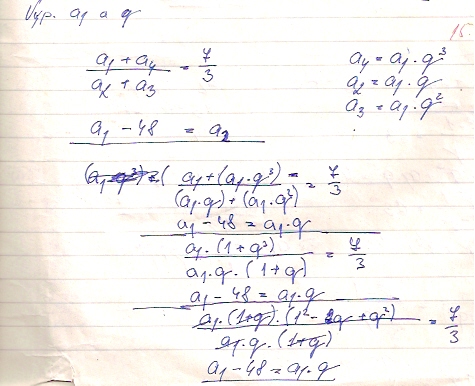 Vyp. a₁ a q
15.
(a₁ + a₄)/(a₂ + a₃) = 7/3
a₄ = a₁ · q³
a₂ = a₁ · q
a₃ = a₁ · q²
a₁ - 48 = a₂
(a₁ + (a₁ · q³))/((a₁ · q) + (a₁ · q²)) = 7/3
a₁ - 48 = a₁ · q
(a₁ · (1 + q³))/(a₁ · q · (1 + q)) = 7/3
a₁ - 48 = a₁ · q
(a₁ · (1 + q) · (1² - q + q²))/(a₁ · q · (1 + q)) = 7/3
a₁ - 48 = a₁ · q